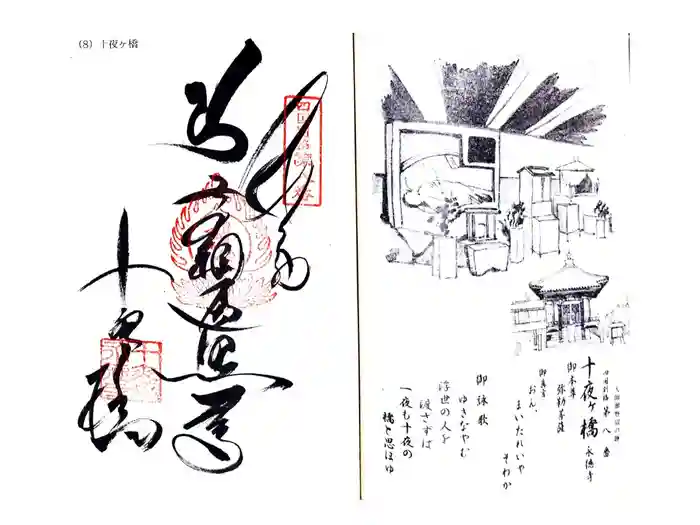 (8) 十夜ヶ橋
奉納
弥勒大菩薩
十夜橋
四国別格第八番
十夜ヶ橋 永徳寺
御本尊
弥勒菩薩
御真言
おん、
まいたれいや
そわか
御詠歌
ゆきなやむ
浮世の人を
渡さずは
一夜も十夜の
橋と思ほゆ